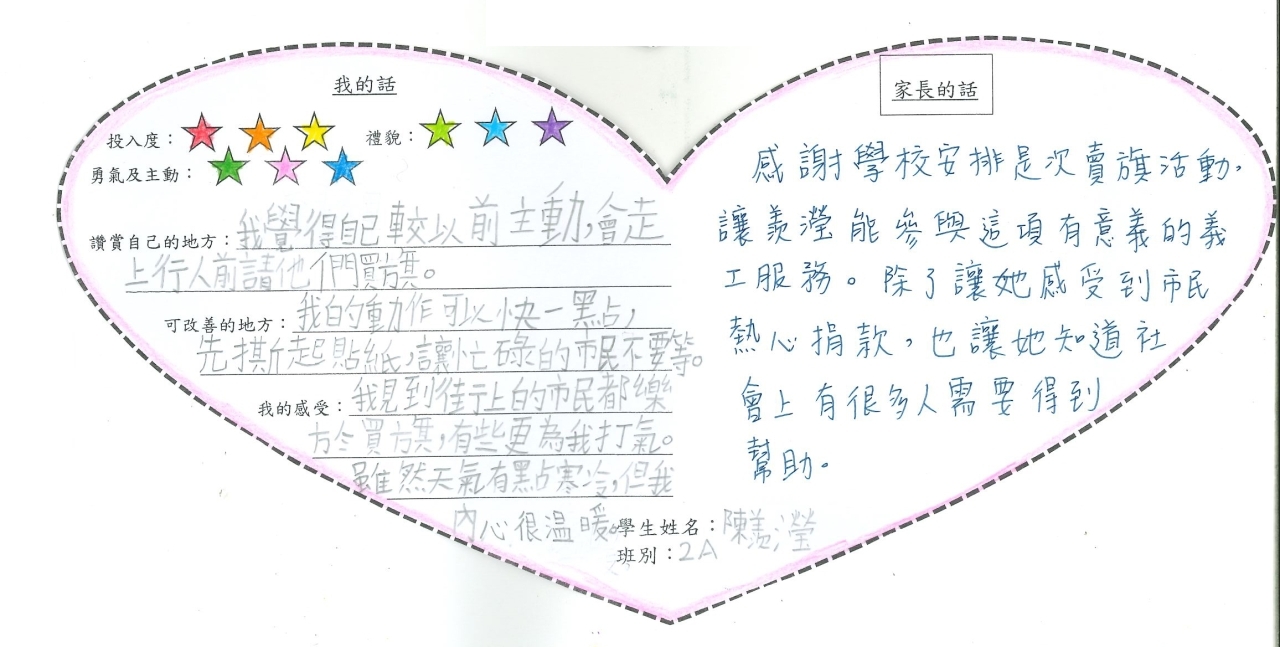 我的話
投入度： 禮貌：
勇氣及主動：
讚賞自己的地方：我覺得自己較以前主動，會走
上行人前請他們買旗。
可改善的地方：我的動作可以快一點，
先撕起貼紙，讓忙碌的市民不要等。
我的感受：我見到街上的市民都樂
於買旗，有些更為我打氣。
雖然天氣有點寒冷，但我
內心很温暖。
學生姓名：陳羨瀅
班別：2A
家長的話
感謝學校安排是次賣旗活動，
讓羨瀅能參與這項有意義的義
工服務。除了讓她感受到市民
熱心捐款，也讓她知道社
會上有很多人需要得到
幫助。